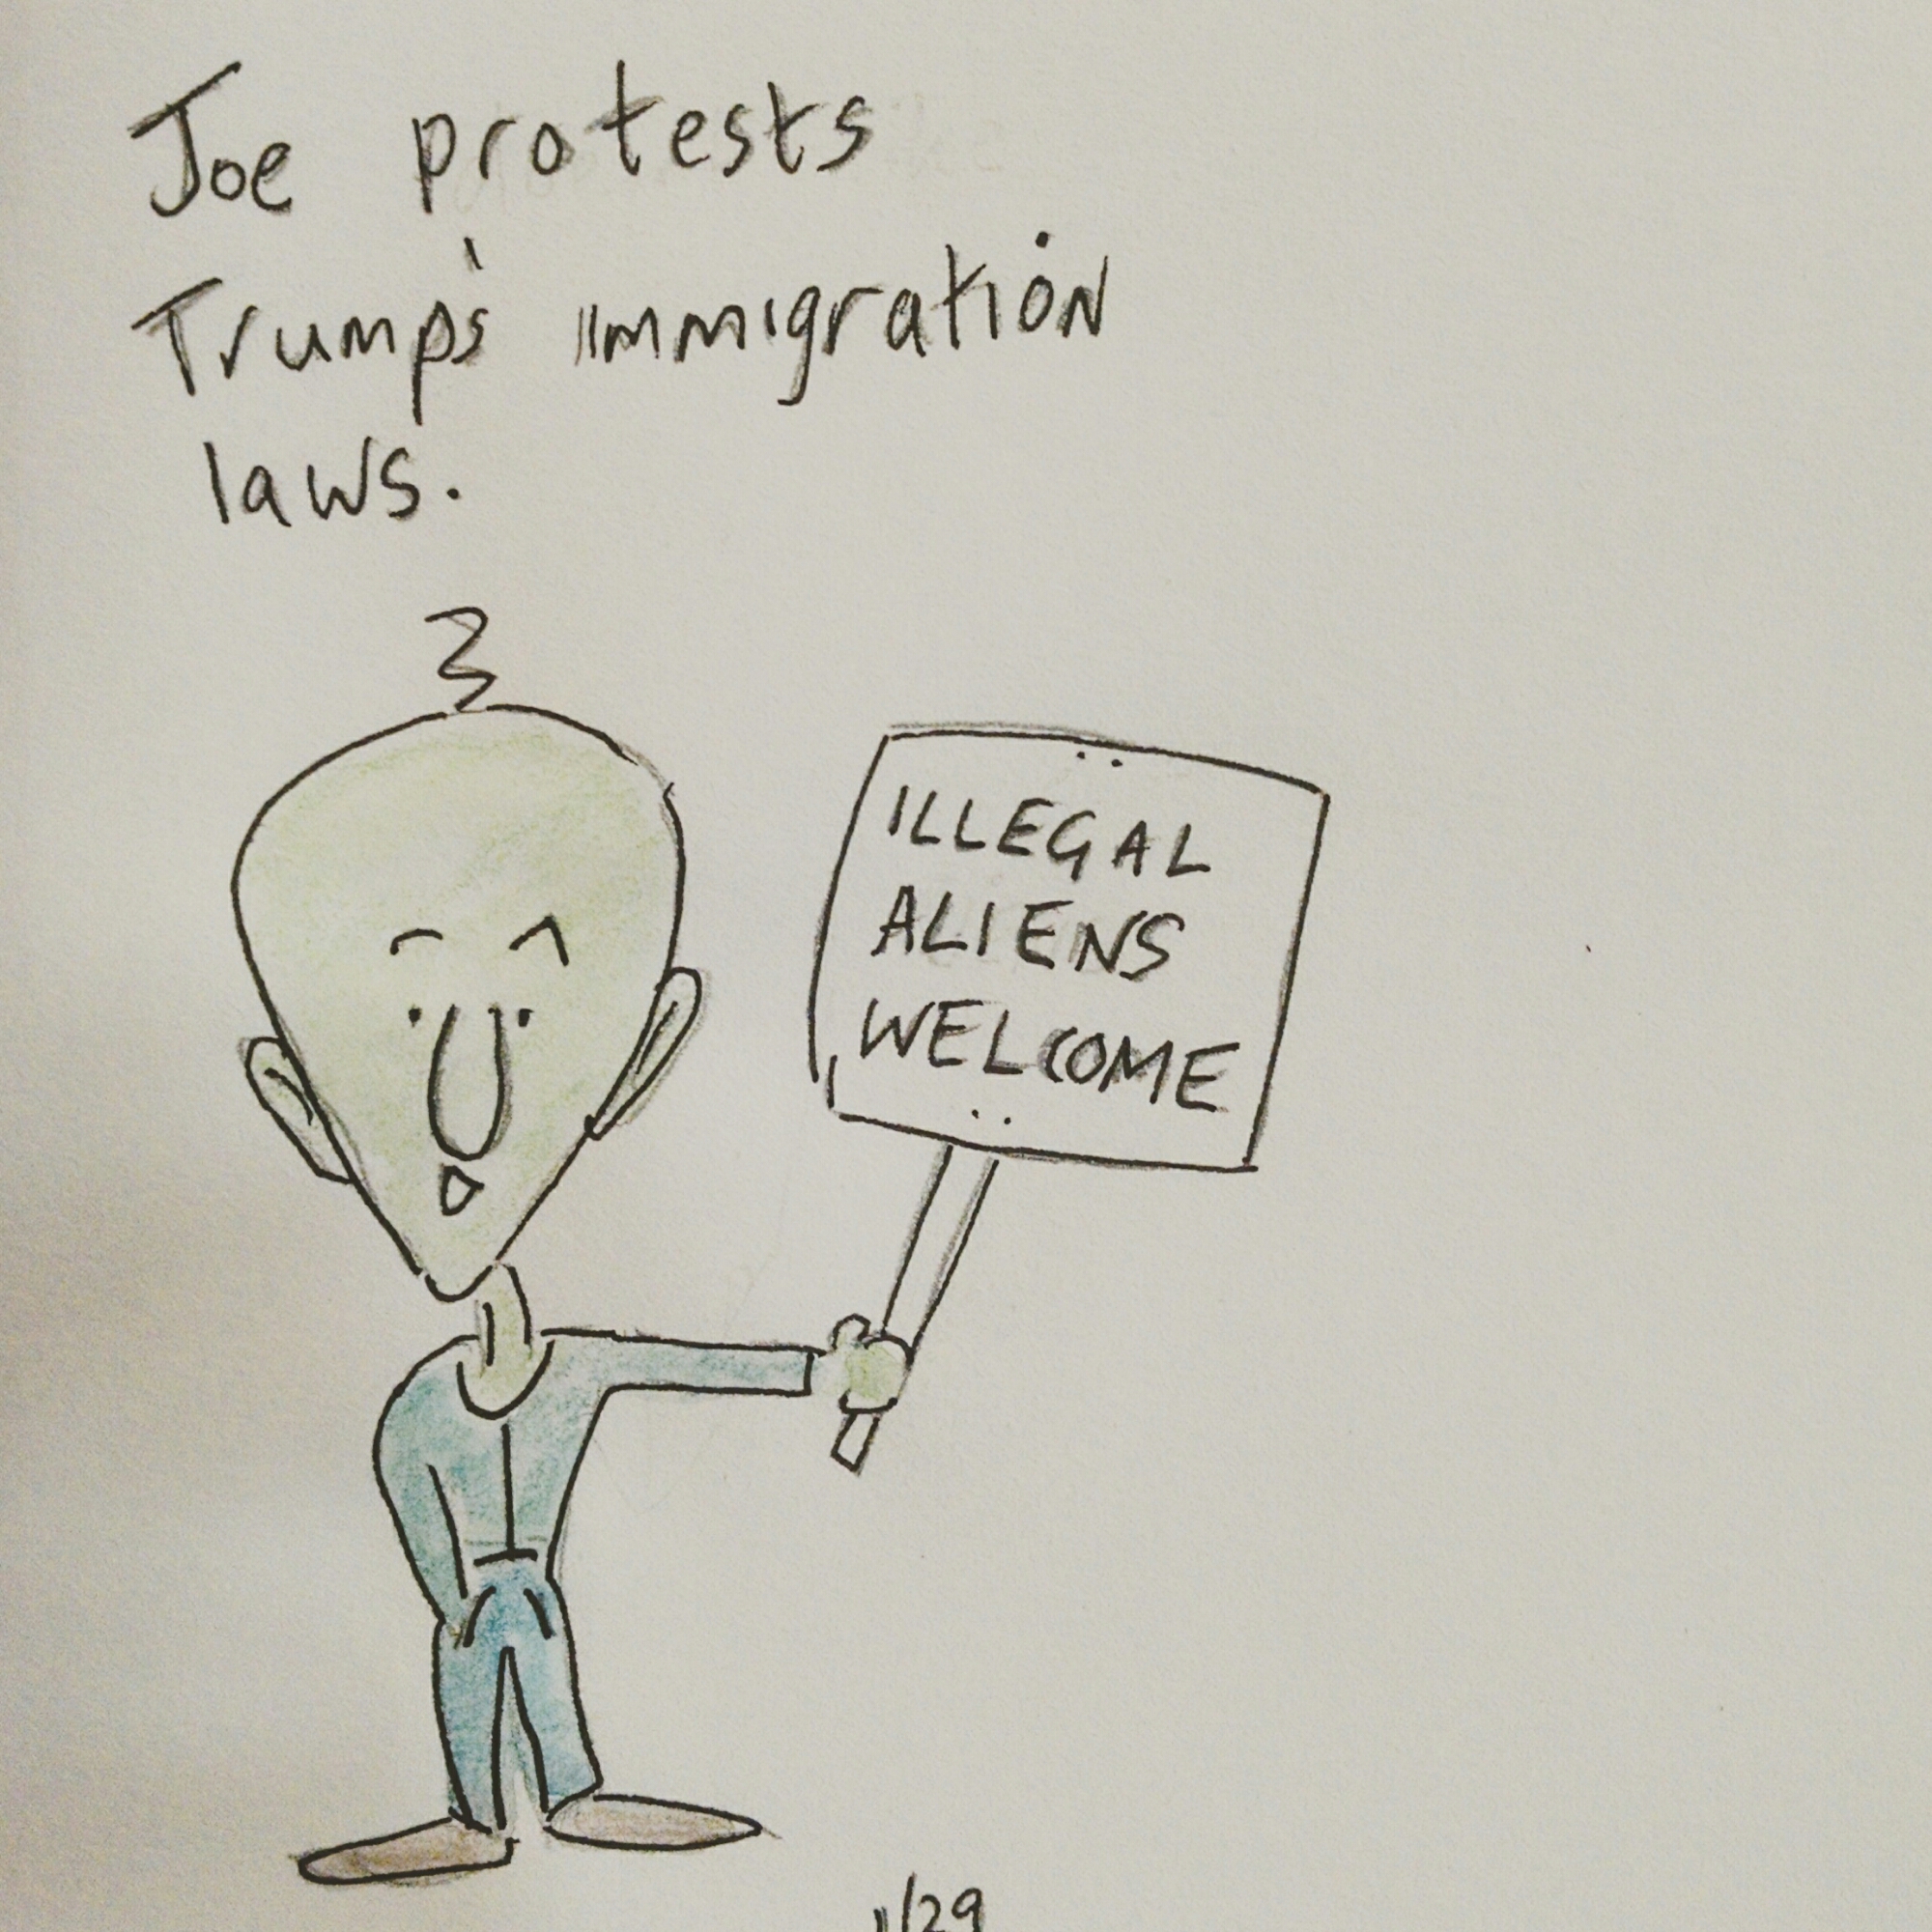 Joe protests
Trump's immigration
laws.
ILLEGAL
ALIENS
WELCOME
1/29